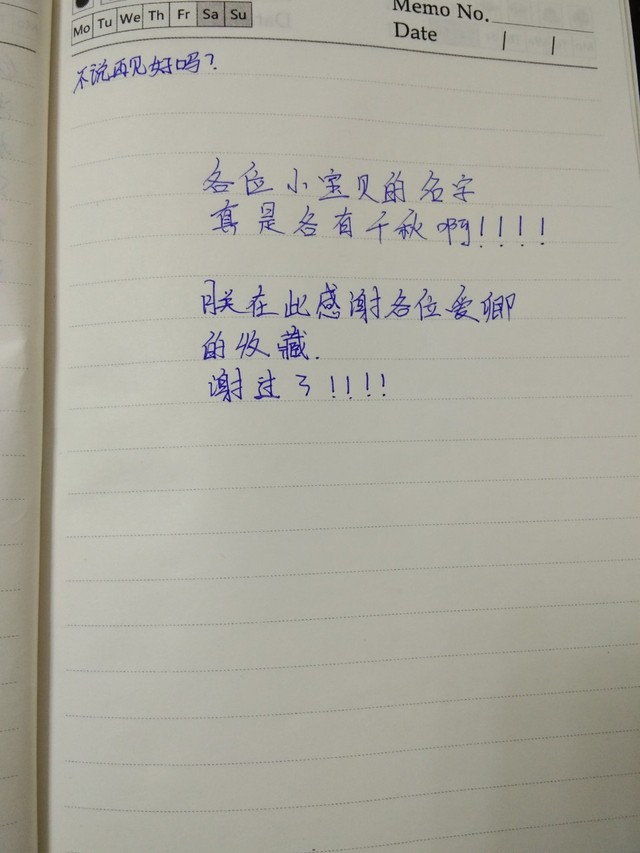 Mo Tu We Th Fr Sa Su
Memo No.
Date
不说再见好吗?
各位小宝贝的名字
真是各有千秋啊!!!!
朕在此感谢各位爱卿
的收藏.
谢过了!!!!